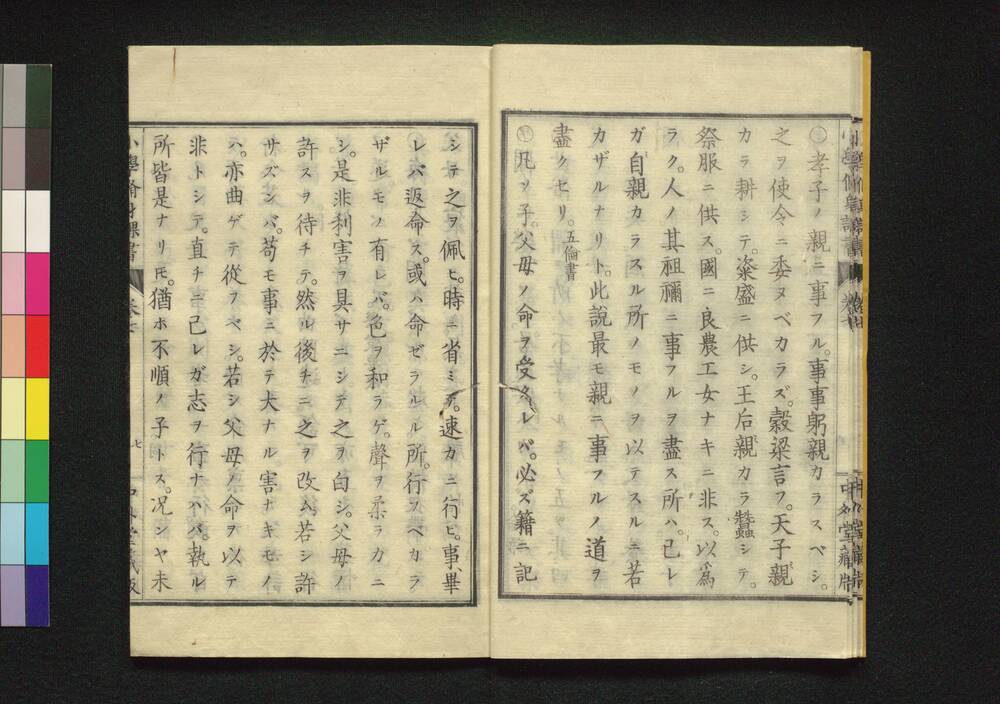 ○孝子ノ親ニ事フル。事事躬親カラスベシ。
之ヲ使令ニ委ヌベカラズ。穀梁言フ。天子親
カラ耕シテ。粢盛ニ供シ。王后親カラ蠶シテ。
祭服ニ供ス。國ニ良農工女ナキニ非ス。以爲
ラク。人ノ其祖禰ニ事フルヲ盡ス所ハ。己レ
ガ自親カラスル所ノモノヲ以テスルニ若
カザルナリト。此說最モ親ニ事フルノ道ヲ
盡クセリ。五倫書
○凡ソ子。父母ノ命ヲ受クレバ。必ズ籍ニ記
シテ之ヲ佩ヒ。時ニ省ミテ。速カニ行ヒ。事畢
レバ返命ス。或ハ命ゼラルル所。行フベカラ
ザルモノ有レバ。色ヲ和ラゲ。聲ヲ柔ラカニ
シ。是非利害ヲ具サニシテ之ヲ白シ。父母ノ
許スヲ待チテ。然ル後チニ之ヲ改ム。若シ許
サズンバ。苟モ事ニ於テ大ナル害ナキモノ
ハ。亦曲ゲテ從フベシ。若シ父母ノ命ヲ以テ
非トシテ。直チニ己レガ志ヲ行ナハバ。執ル
所皆是ナリ𪜈。猶ホ不順ノ子トス。況ンヤ未
小學脩身課書
卷七
七
中外堂藏版